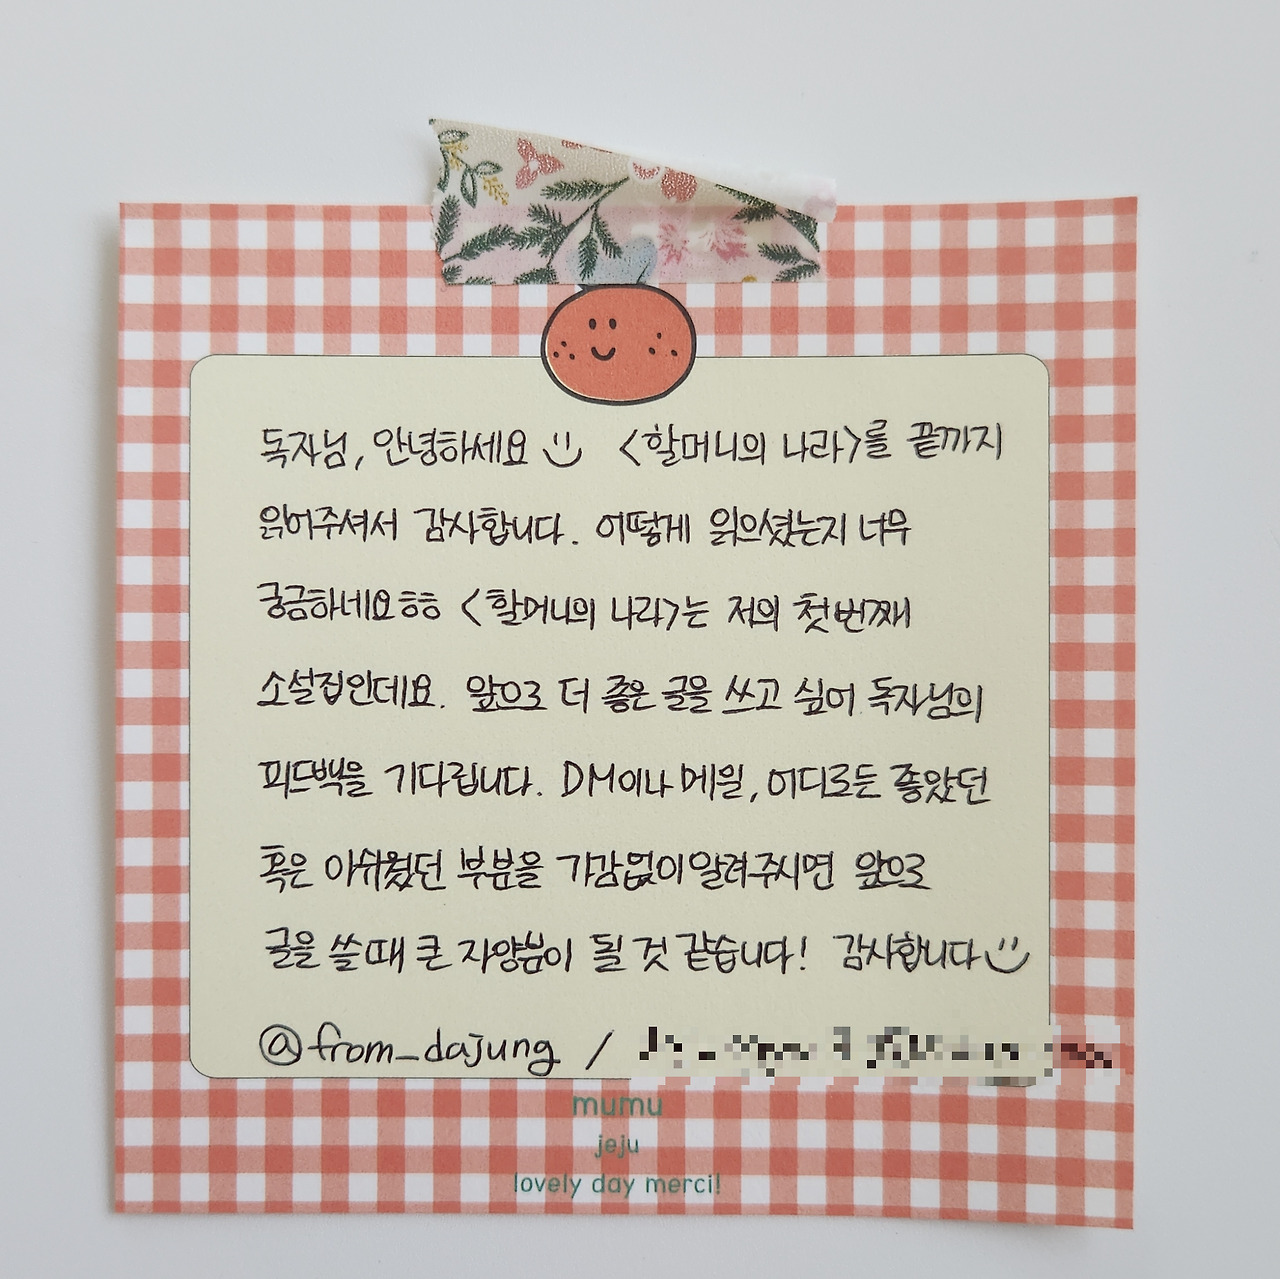 독자님, 안녕하세요 <할머니의 나라>를 끝까지
읽어주셔서 감사합니다. 어떻게 읽으셨는지 너무
궁금하네요ㅎㅎ <할머니의 나라>는 저의 첫번째
소설집인데요. 앞으로 더 좋은 글을 쓰고 싶어 독자님의
피드백을 기다립니다. DM이나 메일, 어디로든 좋았던
혹은 아쉬웠던 부분을 가감없이 알려주시면 앞으로
글을 쓸 때 큰 자양분이 될 것 같습니다! 감사합니다
@from_dajung /
mumu
jeju
lovely day merci!